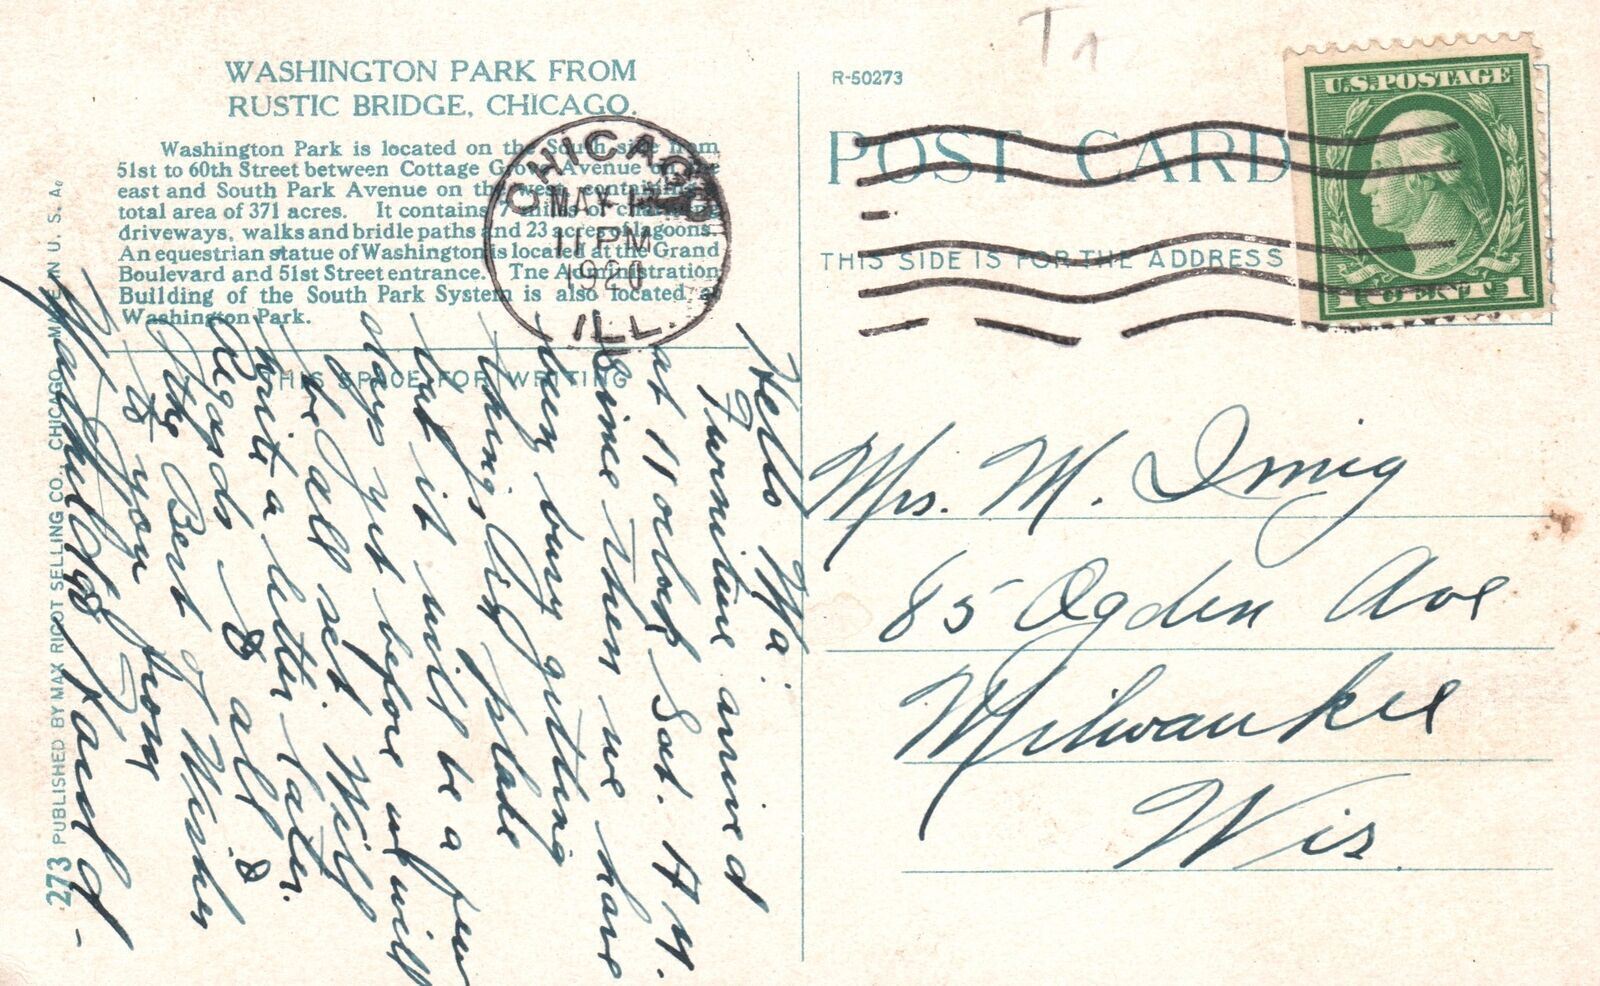 WASHINGTON PARK FROM
RUSTIC BRIDGE, CHICAGO.
Washington Park is located on the South side from
51st to 60th Street between Cottage Grove Avenue on the
east and South Park Avenue on the west, containing a
total area of 371 acres. It contains 7 miles of charming
driveways, walks and bridle paths and 23 acres of lagoons.
An equestrian statue of Washington is located at the Grand
Boulevard and 51st Street entrance. Tne Administration
Building of the South Park System is also located at
Washington Park.
THIS SPACE FOR WRITING
273 PUBLISHED BY MAX RIGOT SELLING CO., CHICAGO. MADE IN U. S. A.
CHICAGO
MAY
11 PM
1920
ILL.
Hello Ma:
Furniture arrived
at 11 oclock Sat. A.M.
Since then we have
been busy getting
things in place
but it will be a few
days yet before we will
be all set. Will
write a letter later.
Regards to all &
the Best of Wishes
to you from
T 1
R-50273
POST CARD
THIS SIDE IS FOR THE ADDRESS
U.S. POSTAGE
1 CENT 1
Mrs. M. Imig
85 Ogden Ave
Milwaukee
Wis